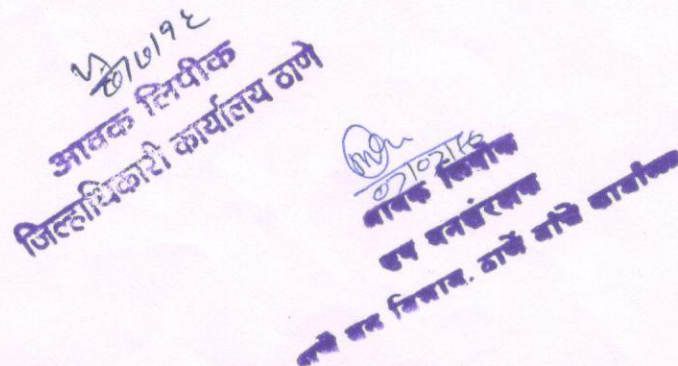 आवक लिपीक
जिल्हाधिकारी कार्यालय ठाणे
आवक लिपीक
उप वनसंरक्षक
ठाणे वन विभाग, ठाणे यांचे कार्यालय